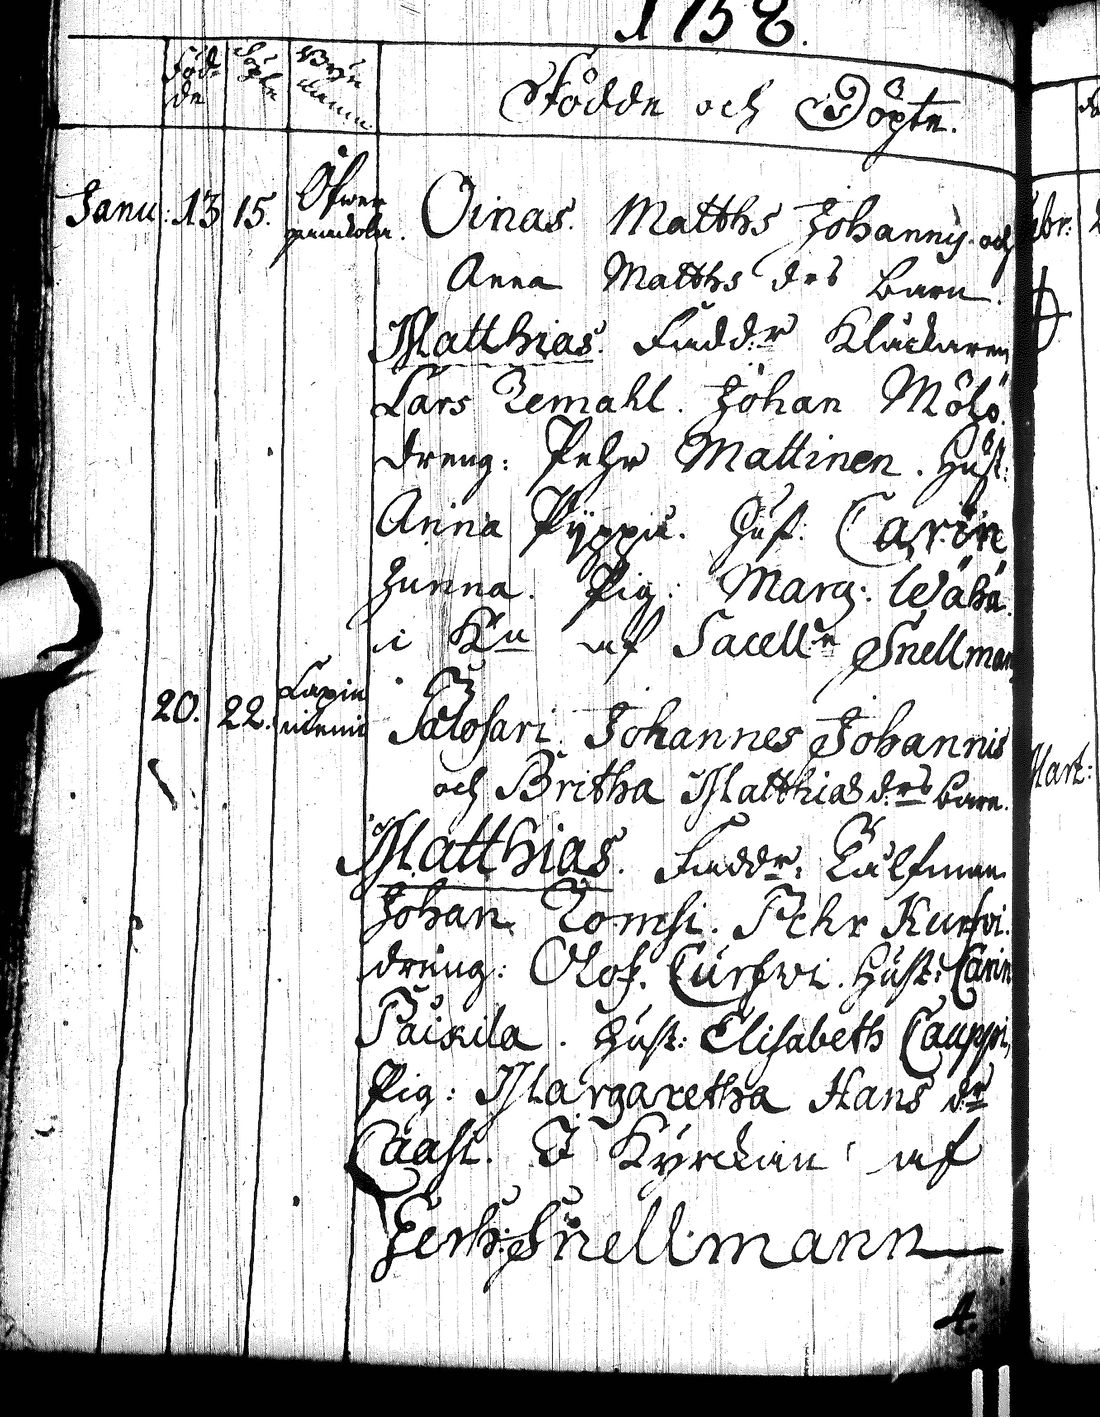 1758.
Föd-
de
Döpte
Byn
Födde och Döpte.
Janu: 13 15. Öfwer
Oinas. Matths Johannis. och
Anna Matths drs barn.
Matthias. Faddr Kläckaren
Lars Zemahl. Johan Mölö.
dreng: Pehr Mattinen. Hust:
Anna Pyppu. Hust: Carin
Junna. Pig: Marg: Wähä.
i Kn af Sacelln Snellman
20. 22. Lapin
niemi
Salosari. Johannes Johannis
och Britha Matthiæ drs barn.
Matthias. Faddr:
Johan Tomsi. Pehr Kurfvi.
dräng: Olof. Curfvi. Hust: Carin
Paikila. Hust: Elisabeth Cauppi,
Pig: Margaretha Hans dr
Caasi. I Kyrckan af
Snellmann
4.
Mart: